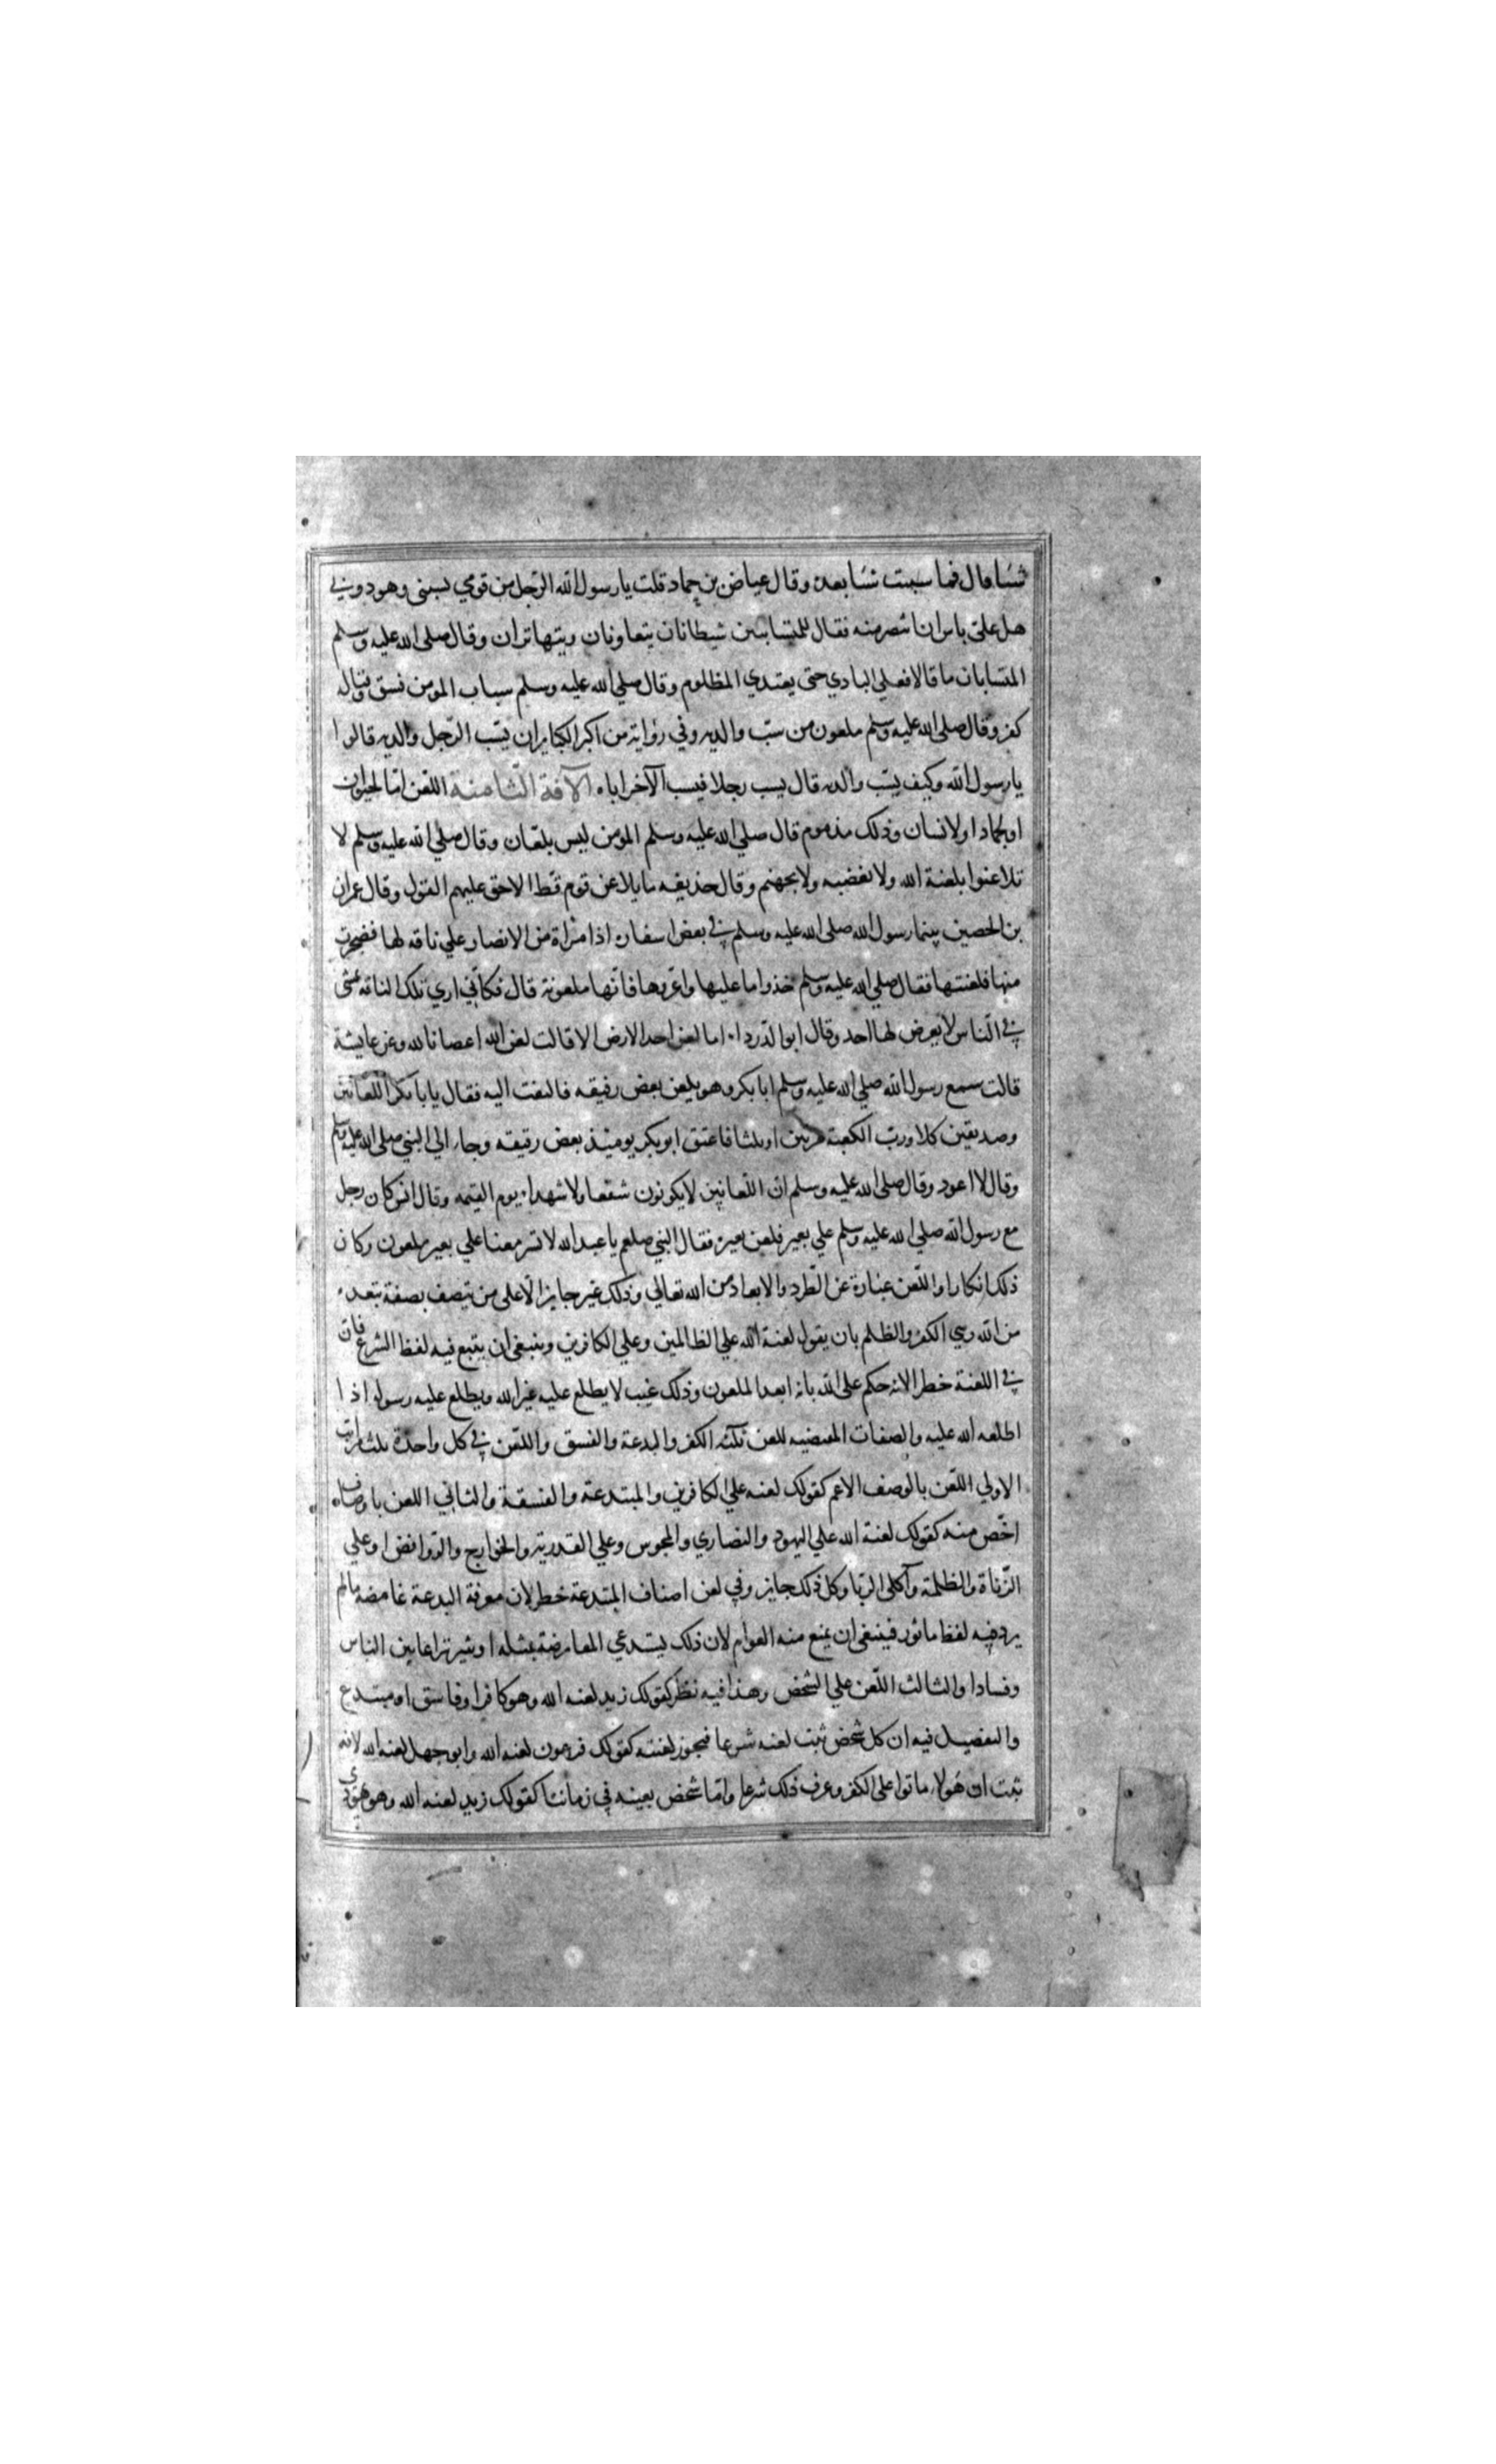 شيئا قال فما سببت شيئا بعده وقال عياض بن حماد قلت يا رسول الله الرجل من قومي يسبني وهو دوني
هل علي باس ان انتصر منه فقال المتسابين شيطانان يتعاونان ويتهاتران وقال صلي الله عليه وسلم
المتسابان ما قالا فعلي البادي حتى يعتدي المظلوم وقال صلي الله عليه وسلم سباب المومن فسق وقتاله
كفر وقال صلي الله عليه وسلم ملعون من سب والديه وفي رواية من اكبر الكباير ان يسب الرجل والديه قالوا
يا رسول الله وكيف يسب والديه قال يسب رجلا فيسب الآخر اباه الآفة الثامنة اللعن اما لحيوان
او لجماد او لانسان وذلك مذموم قال صلي الله عليه وسلم المومن ليس بلعان وقال صلي الله عليه وسلم لا
تلاعنوا بلعنة الله ولا بغضبه ولا بجهنم وقال حذيفه ما تلاعن قوم قط الا حق عليهم القول وقال عمران
بن الحصين بينما رسول الله صلي الله عليه وسلم في بعض اسفاره اذا امراة من الانصار علي ناقه لها فضجرت
منها فلعنتها فقال صلي الله عليه وسلم خذوا ما عليها واعروها فانها ملعونة قال فكاني اري تلك الناقه تمشي
في الناس لا يعرض لها احد وقال ابو الدرداء ما لعن احد الارض الا قالت لعن الله اعصانا لله وعن عايشة
قالت سمع رسول الله صلي الله عليه وسلم ابا بكر وهو يلعن بعض رقيقه فالتفت اليه فقال يا ابا بكر اللعانين
وصديقين كلا ورب الكعبة مرتين او ثلثا فاعتق ابو بكر يوميذ بعض رقيقه وجاء الي النبي صلي الله عليه وسلم
وقال لا اعود وقال صلي الله عليه وسلم ان اللعانين لا يكونون شفعا ولا شهداء يوم القيمه وقال انس كان رجل
مع رسول الله صلي الله عليه وسلم علي بعير فلعن بعيره فقال النبي صلعم يا عبد الله لا تسر معنا علي بعير ملعون وكان
ذلك انكارا واللعن عبارة عن الطرد والابعاد من الله تعالي وذلك غير جايز الا علي من يتصف بصفة تبعده
من الله وهي الكفر والظلم بان يقول لعنة الله علي الظالمين وعلي الكافرين وينبغي ان يتبع فيه لفظ الشرع فان
في اللعنة خطر الانه حكم علي الله بانه ابعد الملعون وذلك غيب لا يطلع عليه غير الله ويطلع عليه رسوله اذا
اطلعه الله عليه والصفات المقتضيه للعن ثلثة الكفر والبدعة والفسق واللعن في كل واحدة ثلث مراتب
الاولي اللعن بالوصف الاعم كقولك لعنه علي الكافرين والمبتدعة والفسقة والثاني اللعن باوصاف
اخص منه كقولك لعنة الله علي اليهود والنصاري والمجوس وعلي القدرية والخوارج والروافض او علي
الزناة والظلمة وآكلي الربا وكل ذلك جايز وفي لعن اصناف المبتدعة خطر لان معرفة البدعة غامضه مالم
يرد فيه لفظ ماثور فينبغي ان يمنع منه العوام لان ذلك يستدعي المعارضة بمثله ويثير نزاعا بين الناس
وفسادا والثالث اللعن علي الشخص وهذا فيه نظر كقولك زيد لعنه الله وهو كافر او فاسق او مبتدع
والتفصيل فيه ان كل شخص ثبت لعنه شرعا فيجوز لعنته كقولك فرعون لعنه الله وابو جهل لعنه الله لانه
ثبت ان هولاء ماتوا علي الكفر وعرف ذلك شرعا واما شخص بعينه في زماننا كقولك زيد لعنه الله وهو يهودي